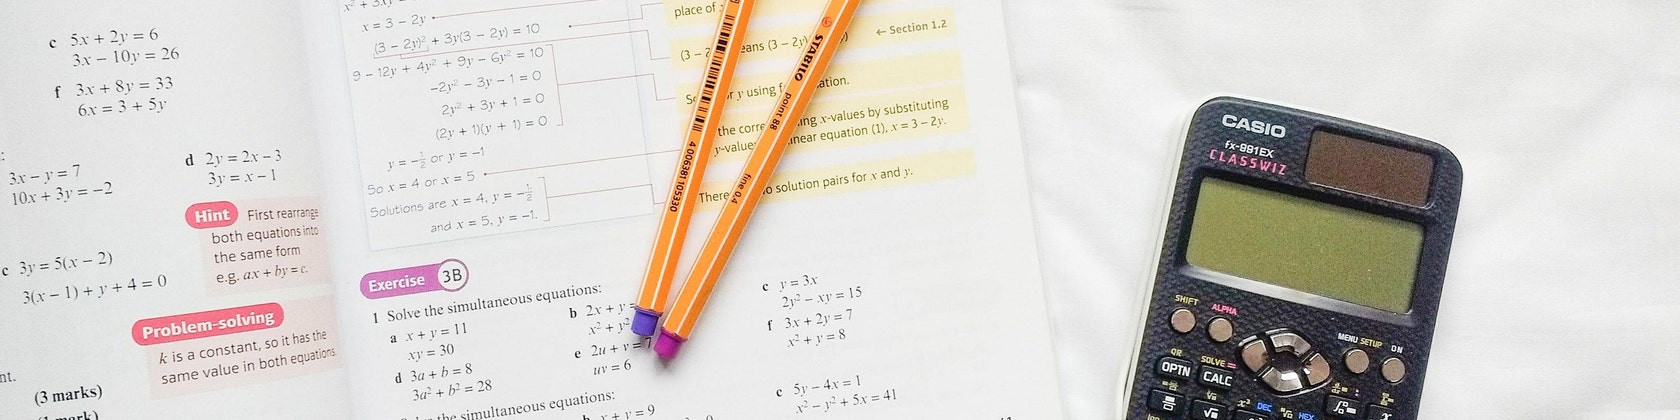 c 5x + 2y = 6
3x − 10y = 26
f 3x + 8y = 33
6x = 3 + 5y
3x − y = 7
10x + 3y = −2
d 2y = 2x − 3
3y = x − 1
Hint First rearrange
both equations into
the same form
e.g. ax + by = c.
c 3y = 5(x − 2)
3(x − 1) + y + 4 = 0
Problem-solving
k is a constant, so it has the
same value in both equations.
(3 marks)
x = 3 − 2y
(3 − 2y)² + 3y(3 − 2y) = 10
9 − 12y + 4y² + 9y − 6y² = 10
−2y² − 3y − 1 = 0
2y² + 3y + 1 = 0
(2y + 1)(y + 1) = 0
y = −½ or y = −1
So x = 4 or x = 5
Solutions are x = 4, y = −½
and x = 5, y = −1.
place of
← Section 1.2
y using
the
x-values by substituting
equation (1), x = 3 − 2y.
There
solution pairs for x and y.
Exercise 3B
1 Solve the simultaneous equations:
a x + y = 11
xy = 30
b 2x + y =
x² + y²
c y = 3x
2y² − xy = 15
d 3a + b = 8
3a² + b² = 28
e 2u + v =
uv = 6
f 3x + 2y = 7
x² + y = 8
the simultaneous equations:
x + y = 9
c 5y − 4x = 1
x² − y² + 5x = 41
4 006381 105330
STABILO
point 88
fine 0.4
CASIO
fx-991EX
CLASSWIZ
SHIFT ALPHA
MENU SETUP ON
QR
OPTN
SOLVE =
CALC
DEC HEX